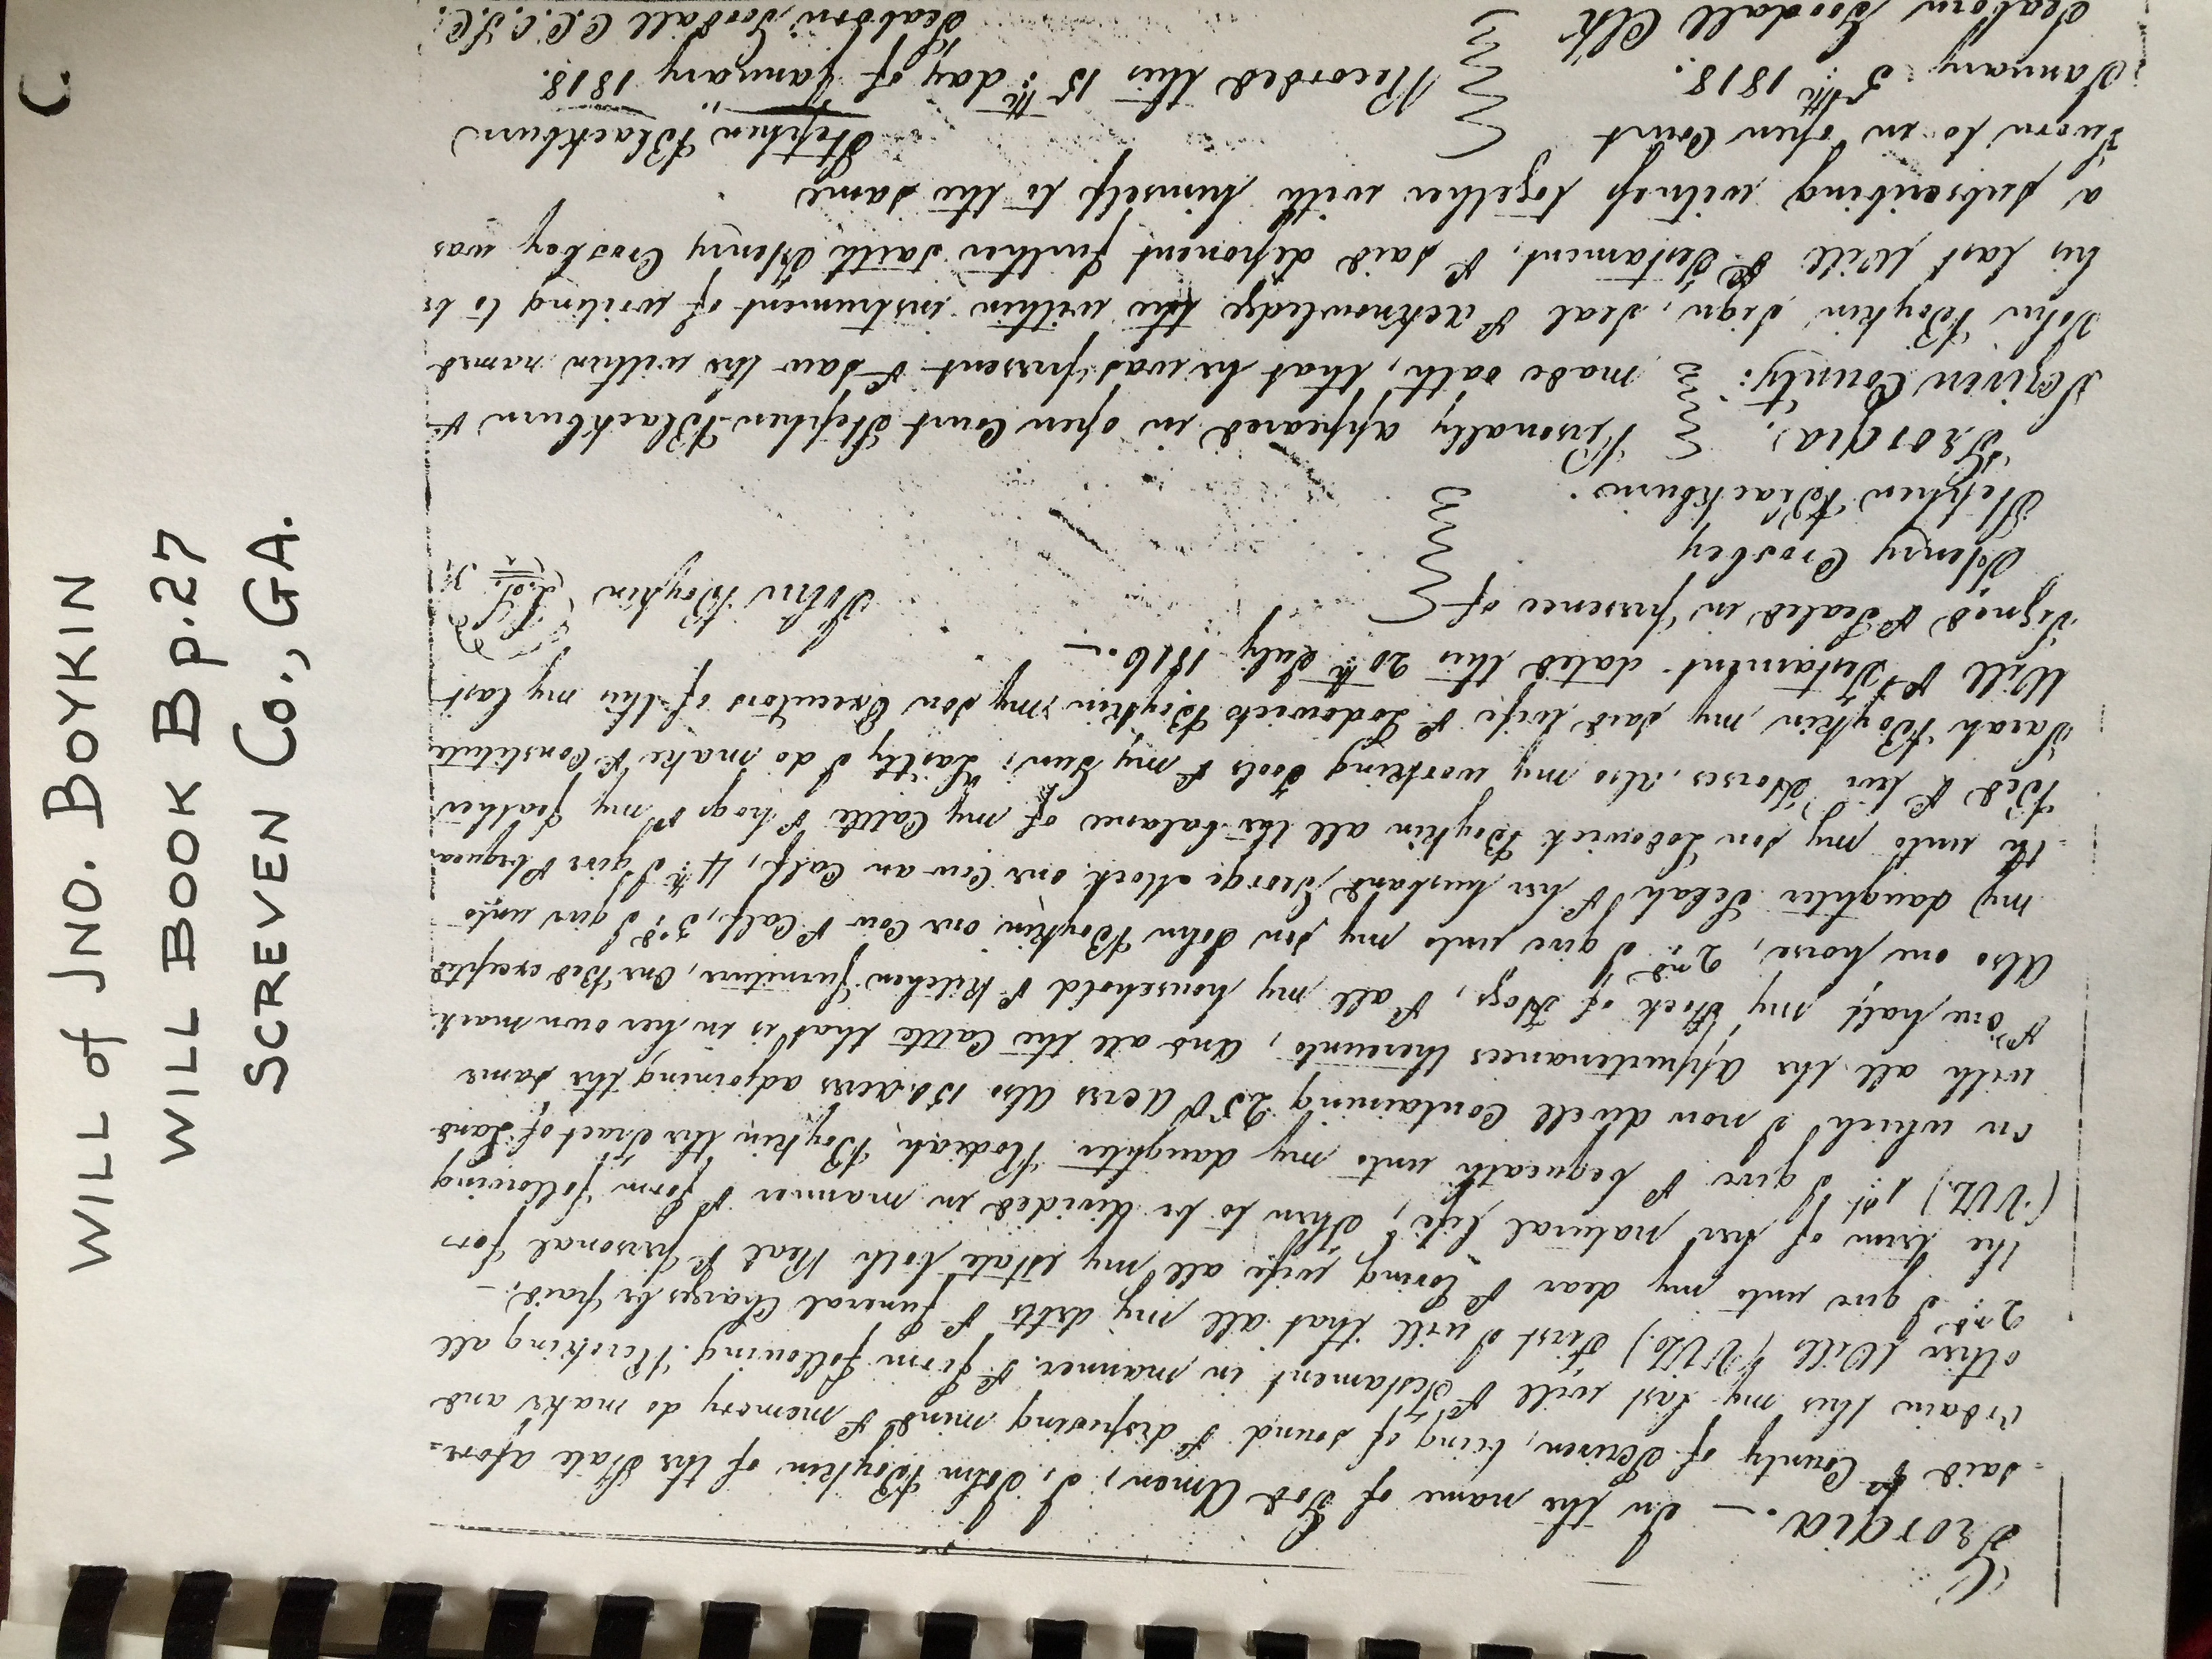 WILL of JNO. BOYKIN
WILL BOOK B p.27
SCREVEN Co., GA.
C.
Georgia. — In the name of God Amen, I, John Boykin of the State afore=
=said & County of Scriven, being of sound & disposing mind & memory do make and
ordain this my last will & Testament in manner & form following. Revoking all
other Wills (VIZ.) First I will that all my debts & funeral Charges be paid. —
2nd I give unto my dear & loving wife all my estate both Real & personal for
the term of her natural life, then to be divided in manner & form following
(VIZ.) 1st I give & bequeath unto my daughter Boykin the tract of Land
on which I now dwell Containing 250 Acres also 150 Acres adjoining the same
with all the appurtenances thereunto, and all the Cattle that is in her own mark
& one half my Stock of Hogs, & all my household & Kitchen furniture, One Bed excepted
Also one horse, 2nd I give unto my son John Boykin one Cow & Calf, 3rd I give unto
my daughter Selah & her husband George Mock one Cow an Calf, 4th I give & bequea
=th unto my son Lodowick Boykin all the balance of my Cattle & hogs & my feather
Bed & two Horses. Also my working Tools & my Gun: Lastly I do make & Constitute
Sarah Boykin, my said wife & Lodowick Boykin my son Executors of this my last
Will & Testament. dated this 20th July 1816. —
Signed & Sealed in presence of
John Boykin
Henry Crosbey
Stephen Blackburn.
Georgia,
Scriven County: Personally appeared in open Court Stephen Blackburn &
made oath, that he was present & saw the within named
John Boykin sign, seal & acknowledge the within instrument of writing to be
his last Will & Testament, & said deponent further saith Henry Crosbey was
a subscribing witness together with himself to the same
Sworn to in open Court Stephen Blackburn
January 5th 1818. Recorded this 15th day of January 1818.
Seaborn Goodall Clk Seaborn Goodall C.C.C.S.C.